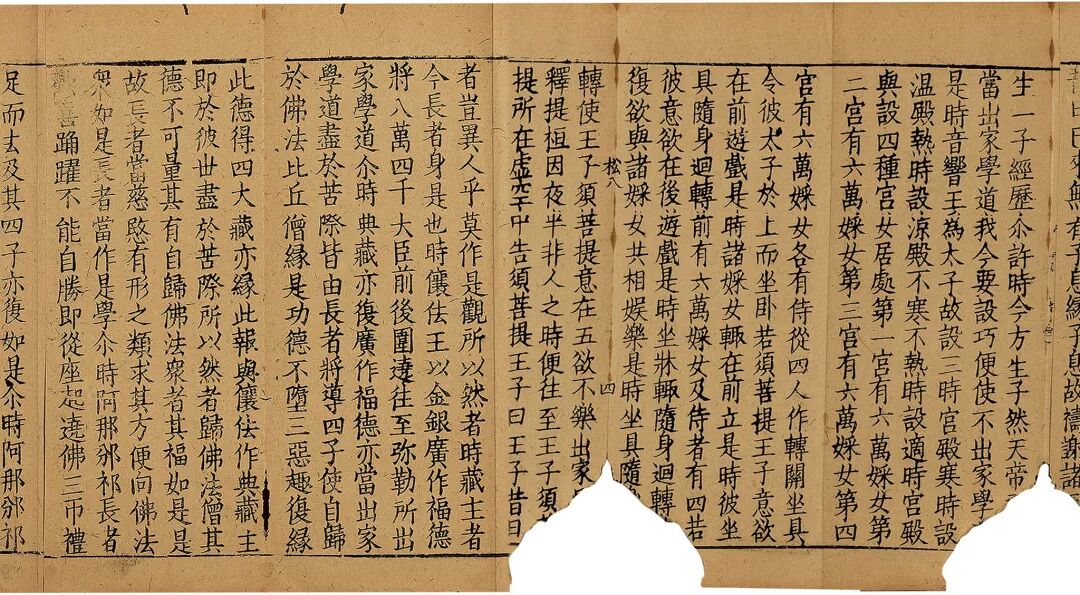 日已來無有子息緣子息故禱謝諸
生一子經歷尒許時今方生子然天帝
當出家學道我今要設巧便使不出家學
是時音響王為太子故設三時宮殿寒時設
温殿熱時設涼殿不寒不熱時設適時宮殿
與設四種宮女居處第一宮有六萬婇女第
二宮有六萬婇女第三宮有六萬婇女第四
宮有六萬婇女各有侍從四人作轉關坐具
令彼太子於上而坐卧若須菩提王子意欲
在前遊戲是時諸婇女輙在前立是時彼坐
具隨身迴轉前有六萬婇女及侍者有四若
彼意欲在後遊戲是時坐牀輙隨身迴轉
復欲與諸婇女共相娛樂是時坐具隨
松八 四
轉使王子須菩提意在五欲不樂出家
釋提桓因夜半非人之時便往至王子須
提所在虛空中告須菩提王子曰王子昔日
者豈異人乎莫作是觀所以然者時藏主者
今長者身是也時儴佉王以金銀廣作福德
將八萬四千大臣前後圍遶往至弥勒所出
家學道尒時典藏亦復廣作福德亦當出家
學道盡於苦際皆由長者將導四子使自歸
於佛法比丘僧緣是功德不墮三惡趣復緣
此德得四大藏亦緣此報與儴佉作典藏主
即於彼世盡於苦際所以然者歸佛法僧其
德不可量其有自歸佛法衆者其福如是是
故長者當慈愍有形之類求其方便向佛法
衆如是長者當作是學尒時阿那邠祁長者
歡喜踊躍不能自勝即從座起遶佛三帀禮
足而去及其四子亦復如是尒時阿那邠祁